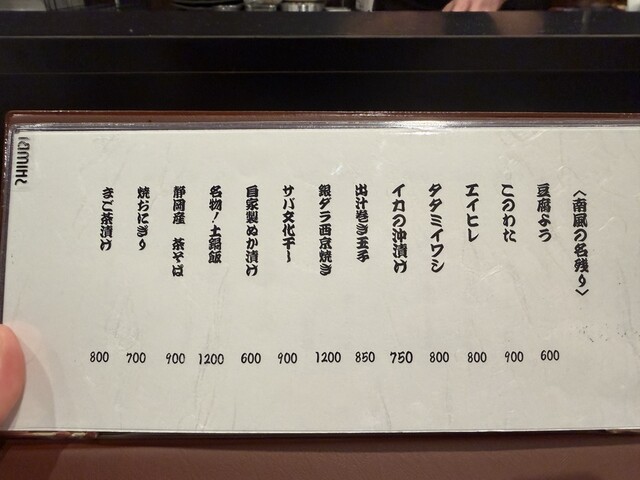 〈南風の名残り〉
豆腐よう 600
このわた 900
エイヒレ 800
タタミイワシ 800
イカの沖漬け 750
出汁巻き玉子 850
銀ダラ西京焼き 1200
サバ文化干し 900
自家製ぬか漬け 600
名物!土鍋飯 1200
静岡産 茶そば 900
焼おにぎり 700
まご茶漬け 800